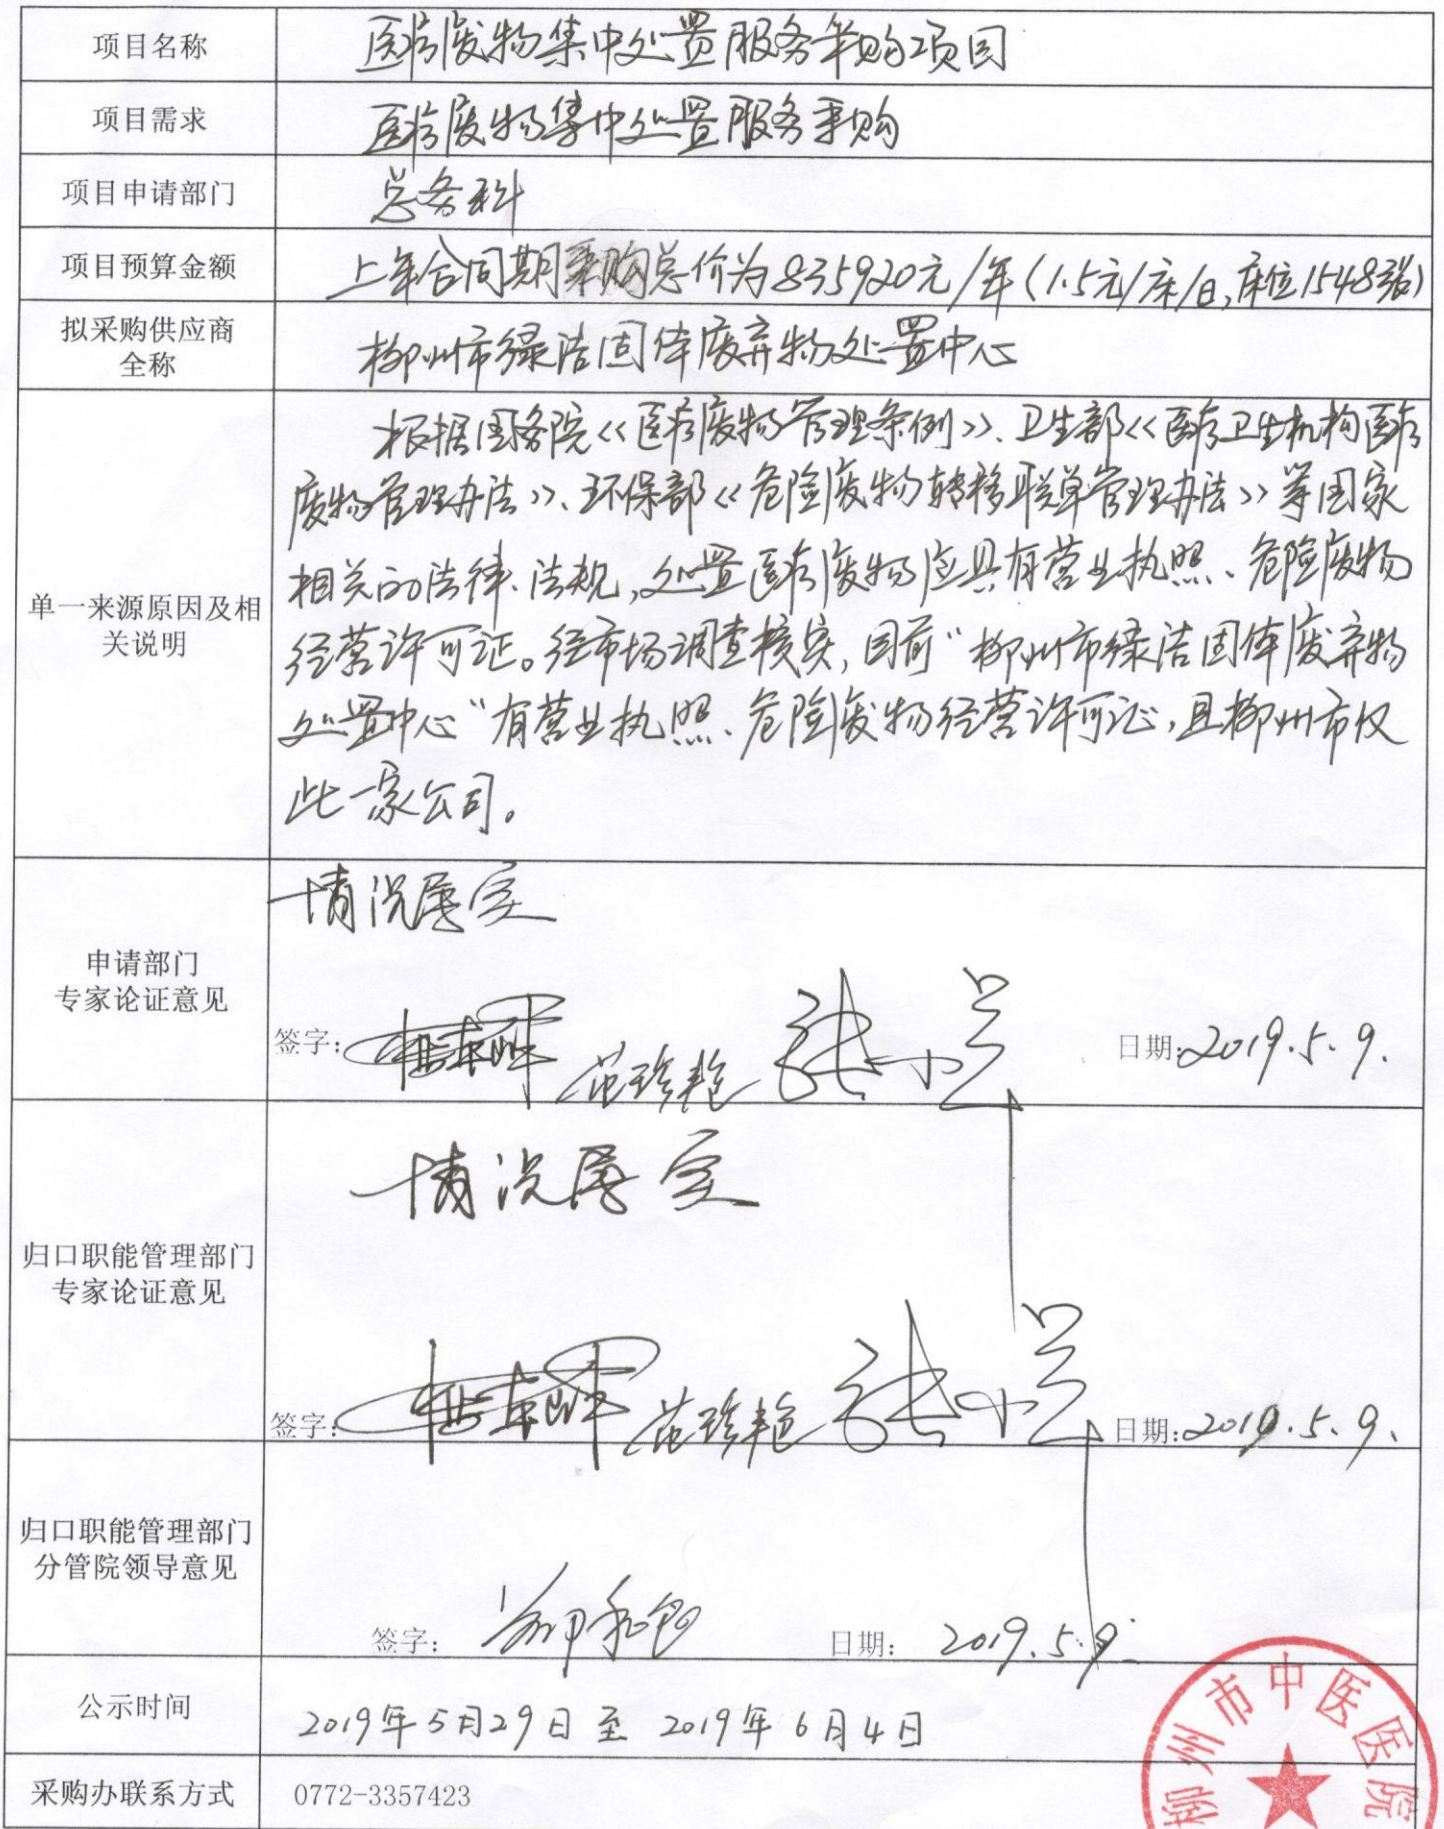 项目名称
医疗废物集中处置服务采购项目
项目需求
医疗废物集中处置服务采购
项目申请部门
总务科
项目预算金额
上年合同期采购总价为835920元/年(1.5元/床/日,床位1548张)
拟采购供应商
全称
柳州市绿洁固体废弃物处置中心
单一来源原因及相
关说明
根据国务院《医疗废物管理条例》、卫生部《医疗卫生机构医疗
废物管理办法》、环保部《危险废物转移联单管理办法》等国家
相关的法律、法规,处置医疗废物应具有营业执照、危险废物
经营许可证。经市场调查核实,目前“柳州市绿洁固体废弃物
处置中心”有营业执照、危险废物经营许可证,且柳州市仅
此一家公司。
申请部门
专家论证意见
情况属实
签字:
范珍艳 张小兰
日期:2019.5.9.
归口职能管理部门
专家论证意见
情况属实
签字:
范珍艳 张小兰
日期:2019.5.9.
归口职能管理部门
分管院领导意见
签字:
日期: 2019.5.9.
公示时间
2019年5月29日至 2019年6月4日
采购办联系方式
0772-3357423
柳州市中医医院